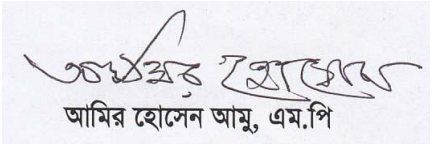 আমির হোসেন
আমির হোসেন আমু, এম.পি